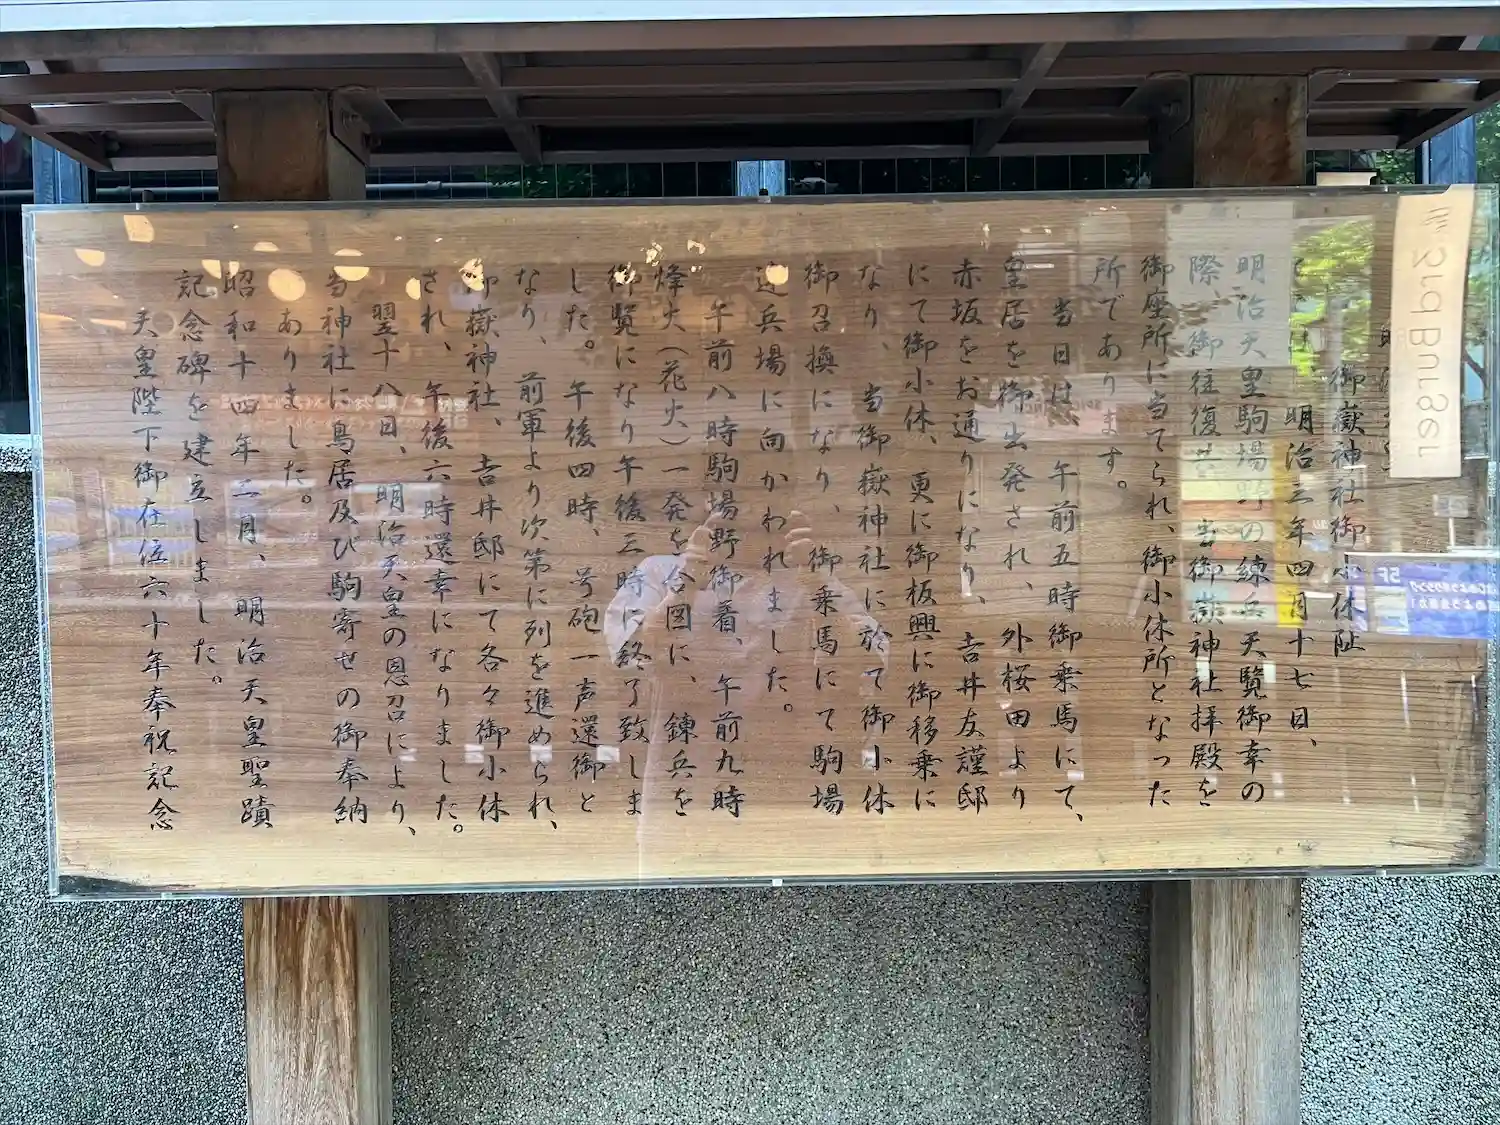 明治天皇
御嶽神社御小休阯
明治三年四月十七日、
明治天皇駒場野の練兵天覧御幸の
際、御往復共、当御嶽神社拝殿を
御座所に当てられ、御小休所となった
所であります。
当日は、午前五時御乗馬にて、
皇居を御出発され、外桜田より
赤坂をお通りになり、吉井友謹邸
にて御小休、更に御板輿に御移乗に
なり、当御嶽神社に於て御小休
御召換になり、御乗馬にて駒場
練兵場に向かわれました。
午前八時駒場野御着、午前九時
烽火(花火)一発を合図に、錬兵を
御覧になり午後三時に終了致しま
した。午後四時、号砲一声還御と
なり、前軍より次第に列を進められ、
御嶽神社、吉井邸にて各々御小休
され、午後六時還幸になりました。
翌十八日、明治天皇の恩召により、
当神社に鳥居及び駒寄せの御奉納
ありました。
昭和十四年二月、明治天皇聖蹟
記念碑を建立しました。
天皇陛下御在位六十年奉祝記念
3rd Burger
5F